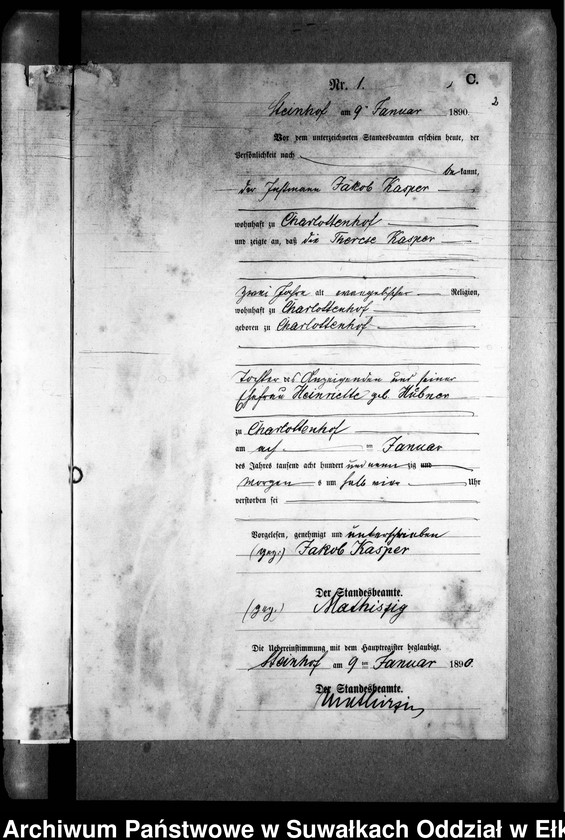 Nr. 1.
C.
2
Steinhof am 9 Januar 1890.
Vor dem unterzeichneten Standesbeamten erschien heute, der
Persönlichkeit nach
bekannt,
der Instmann Jakob Kasper
wohnhaft zu Charlottenhof
und zeigte an, daß die Therese Kasper
zwei Jahre alt evangelischer Religion,
wohnhaft zu Charlottenhof
geboren zu Charlottenhof
Tochter des Anzeigenden und seiner
Ehefrau Heinriette geb. Hübner
zu Charlottenhof
am ten Januar
des Jahres tausend acht hundert und neun zig und
Morgens um halb Uhr
verstorben sei
Vorgelesen, genehmigt und unterschrieben
(gez.) Jakob Kasper
Der Standesbeamte.
(gez.) Mathiszig
Die Uebereinstimmung mit dem Hauptregister beglaubigt.
Steinhof am 9 ten Januar 1890.
Der Standesbeamte.
Archiwum Państwowe w Suwałkach Oddział w Ełk